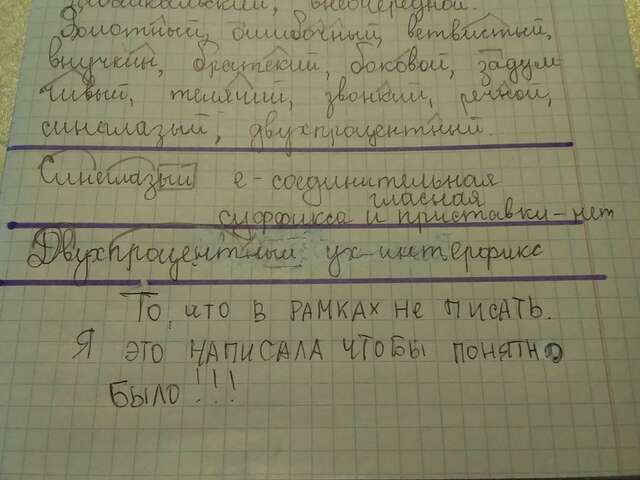 байкальский, внеочередной.
Золотный, ошибочный, ветвистый,
внучкин, братский, боковой, задум
чивый, телячий, звонкий, речной,
синеглазый, двухпроцентный.
Синеглазый е - соединительная
гласная
суффикса и приставки - нет
Двухпроцентный ух - интерфикс
То, что в рамках не писать.
Я это написала чтобы понятно
было!!!